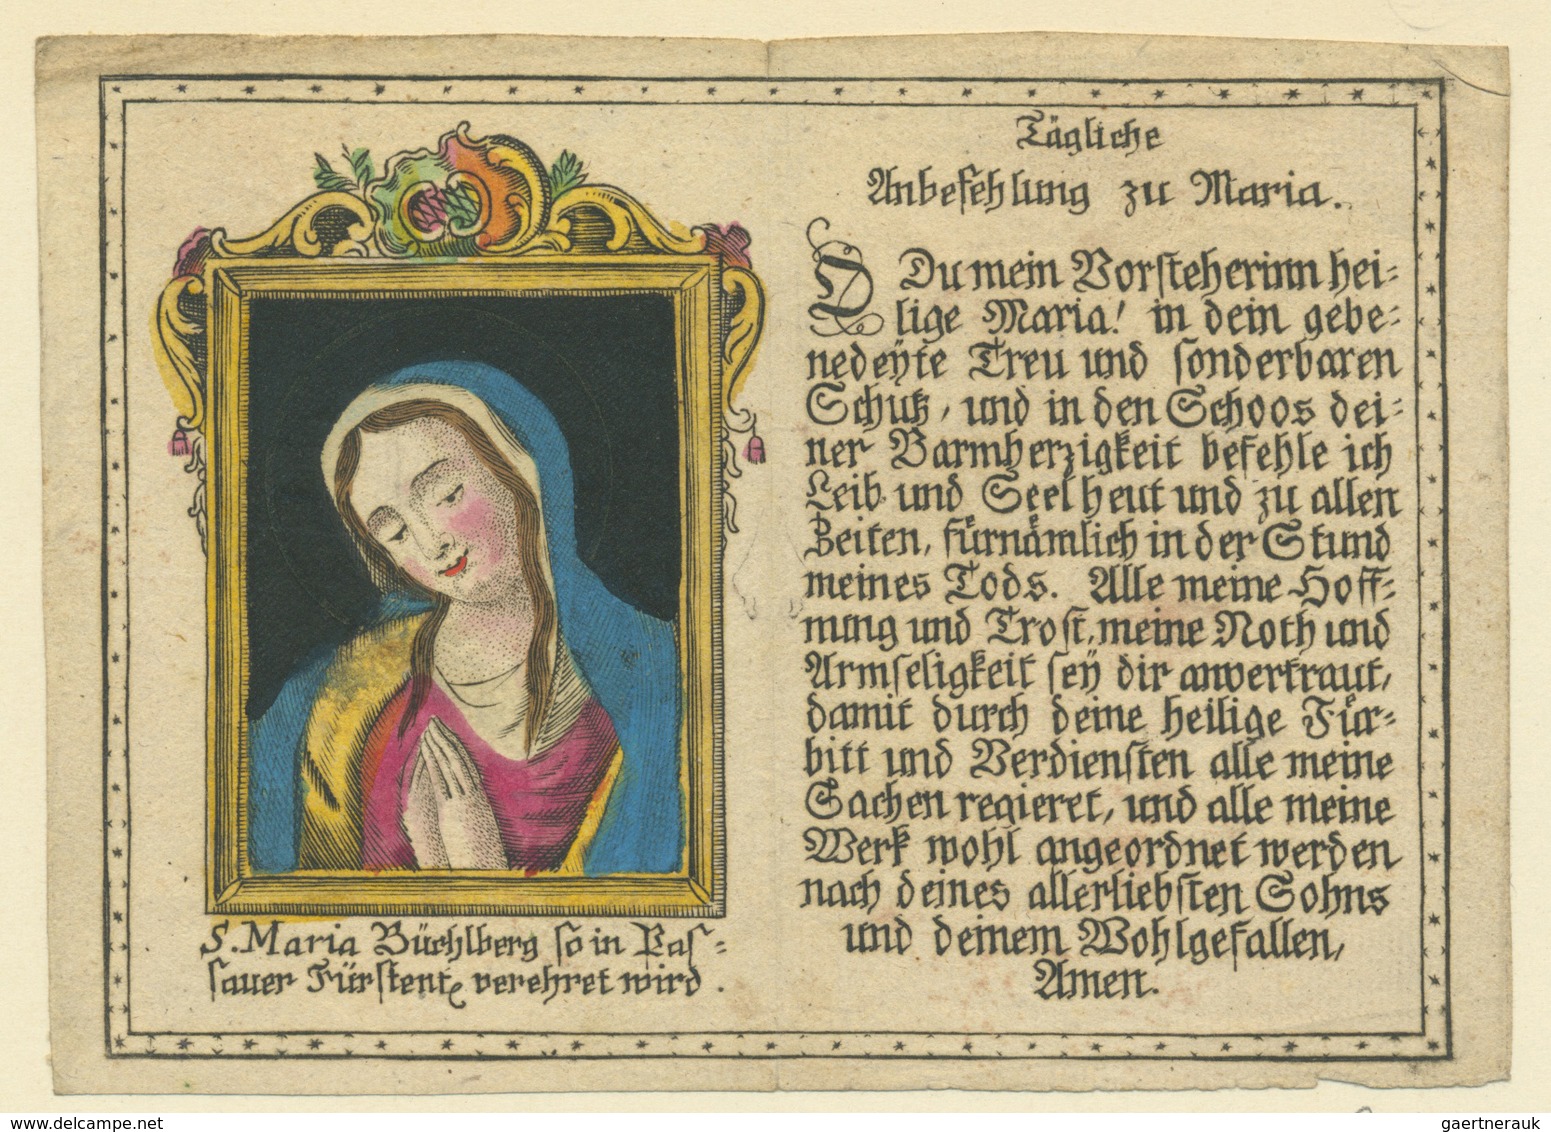 Tägliche
Anbefehlung zu Maria.
O Du mein Vorsteherinn hei=
lige Maria! in dein gebe=
nedeÿte Treu und sonderbaren
Schutz, und in den Schoos dei=
ner Barmherzigkeit befehle ich
Leib und Seel heut und zu allen
Zeiten, fürnämlich in der Stund
meines Tods. Alle meine Hoff=
nung und Trost, meine Noth und
Armseligkeit seÿ dir anvertraut,
damit durch deine heilige Für=
bitt und Verdiensten alle meine
Sachen regieret, und alle meine
Werk wohl angeordnet werden
nach deines allerliebsten Sohns
und deinem Wohlgefallen,
Amen.
S. Maria Büchlberg so in Pas=
sauer Fürstent verehret wird.
www.delcampe.net
gaertnerauk